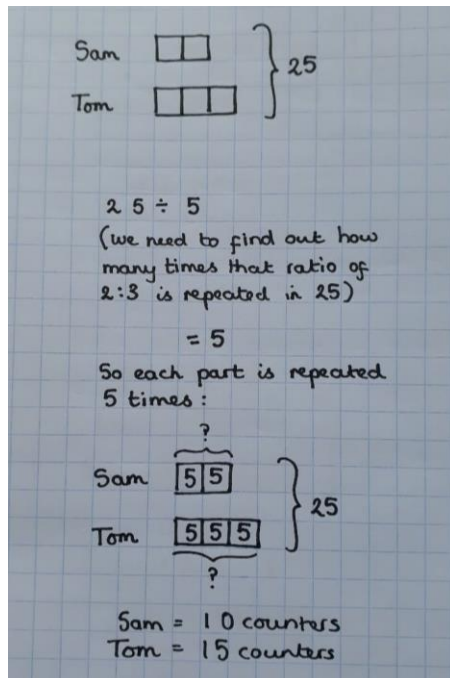 Sam
25
Tom
25 ÷ 5
(we need to find out how
many times that ratio of
2:3 is repeated in 25)
= 5
So each part is repeated
5 times:
?
Sam 5 5
25
Tom 5 5 5
?
Sam = 10 counters
Tom = 15 counters